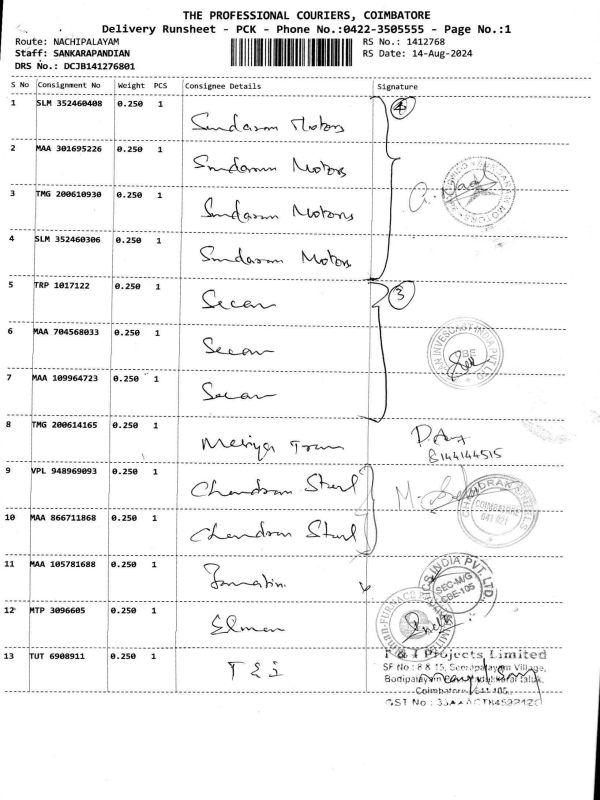 THE PROFESSIONAL COURIERS, COIMBATORE
Delivery Runsheet - PCK - Phone No.:0422-3505555 - Page No.:1
Route: NACHIPALAYAM RS No.: 1412768
Staff: SANKARAPANDIAN RS Date: 14-Aug-2024
DRS No.: DCJB141276801
S No Consignment No Weight PCS Consignee Details Signature
1 SLM 352460408 0.250 1 Sundaram Motors 4
2 MAA 301695226 0.250 1 Sundaram Motors
3 TMG 200610930 0.250 1 Sundaram Motors
4 SLM 352460306 0.250 1 Sundaram Motors
5 TRP 1017122 0.250 1 Secan 3
6 MAA 704568033 0.250 1 Secan
7 MAA 109964723 0.250 1 Secan
8 TMG 200614165 0.250 1
8144144515
9 VPL 948969093 0.250 1 Chandran Steel
10 MAA 866711868 0.250 1 Chandran Steel
COIMBATORE
641 021
11 MAA 105781688 0.250 1
SEC-M/G
CBE-105
12 MTP 3096605 0.250 1 Elman
13 TUT 6908911 0.250 1 T & I
T & I Projects Limited
SF No : 8 & 15, Seerapalayam Village,
Bodipalayam
Coimbatore 641 105
GST No :